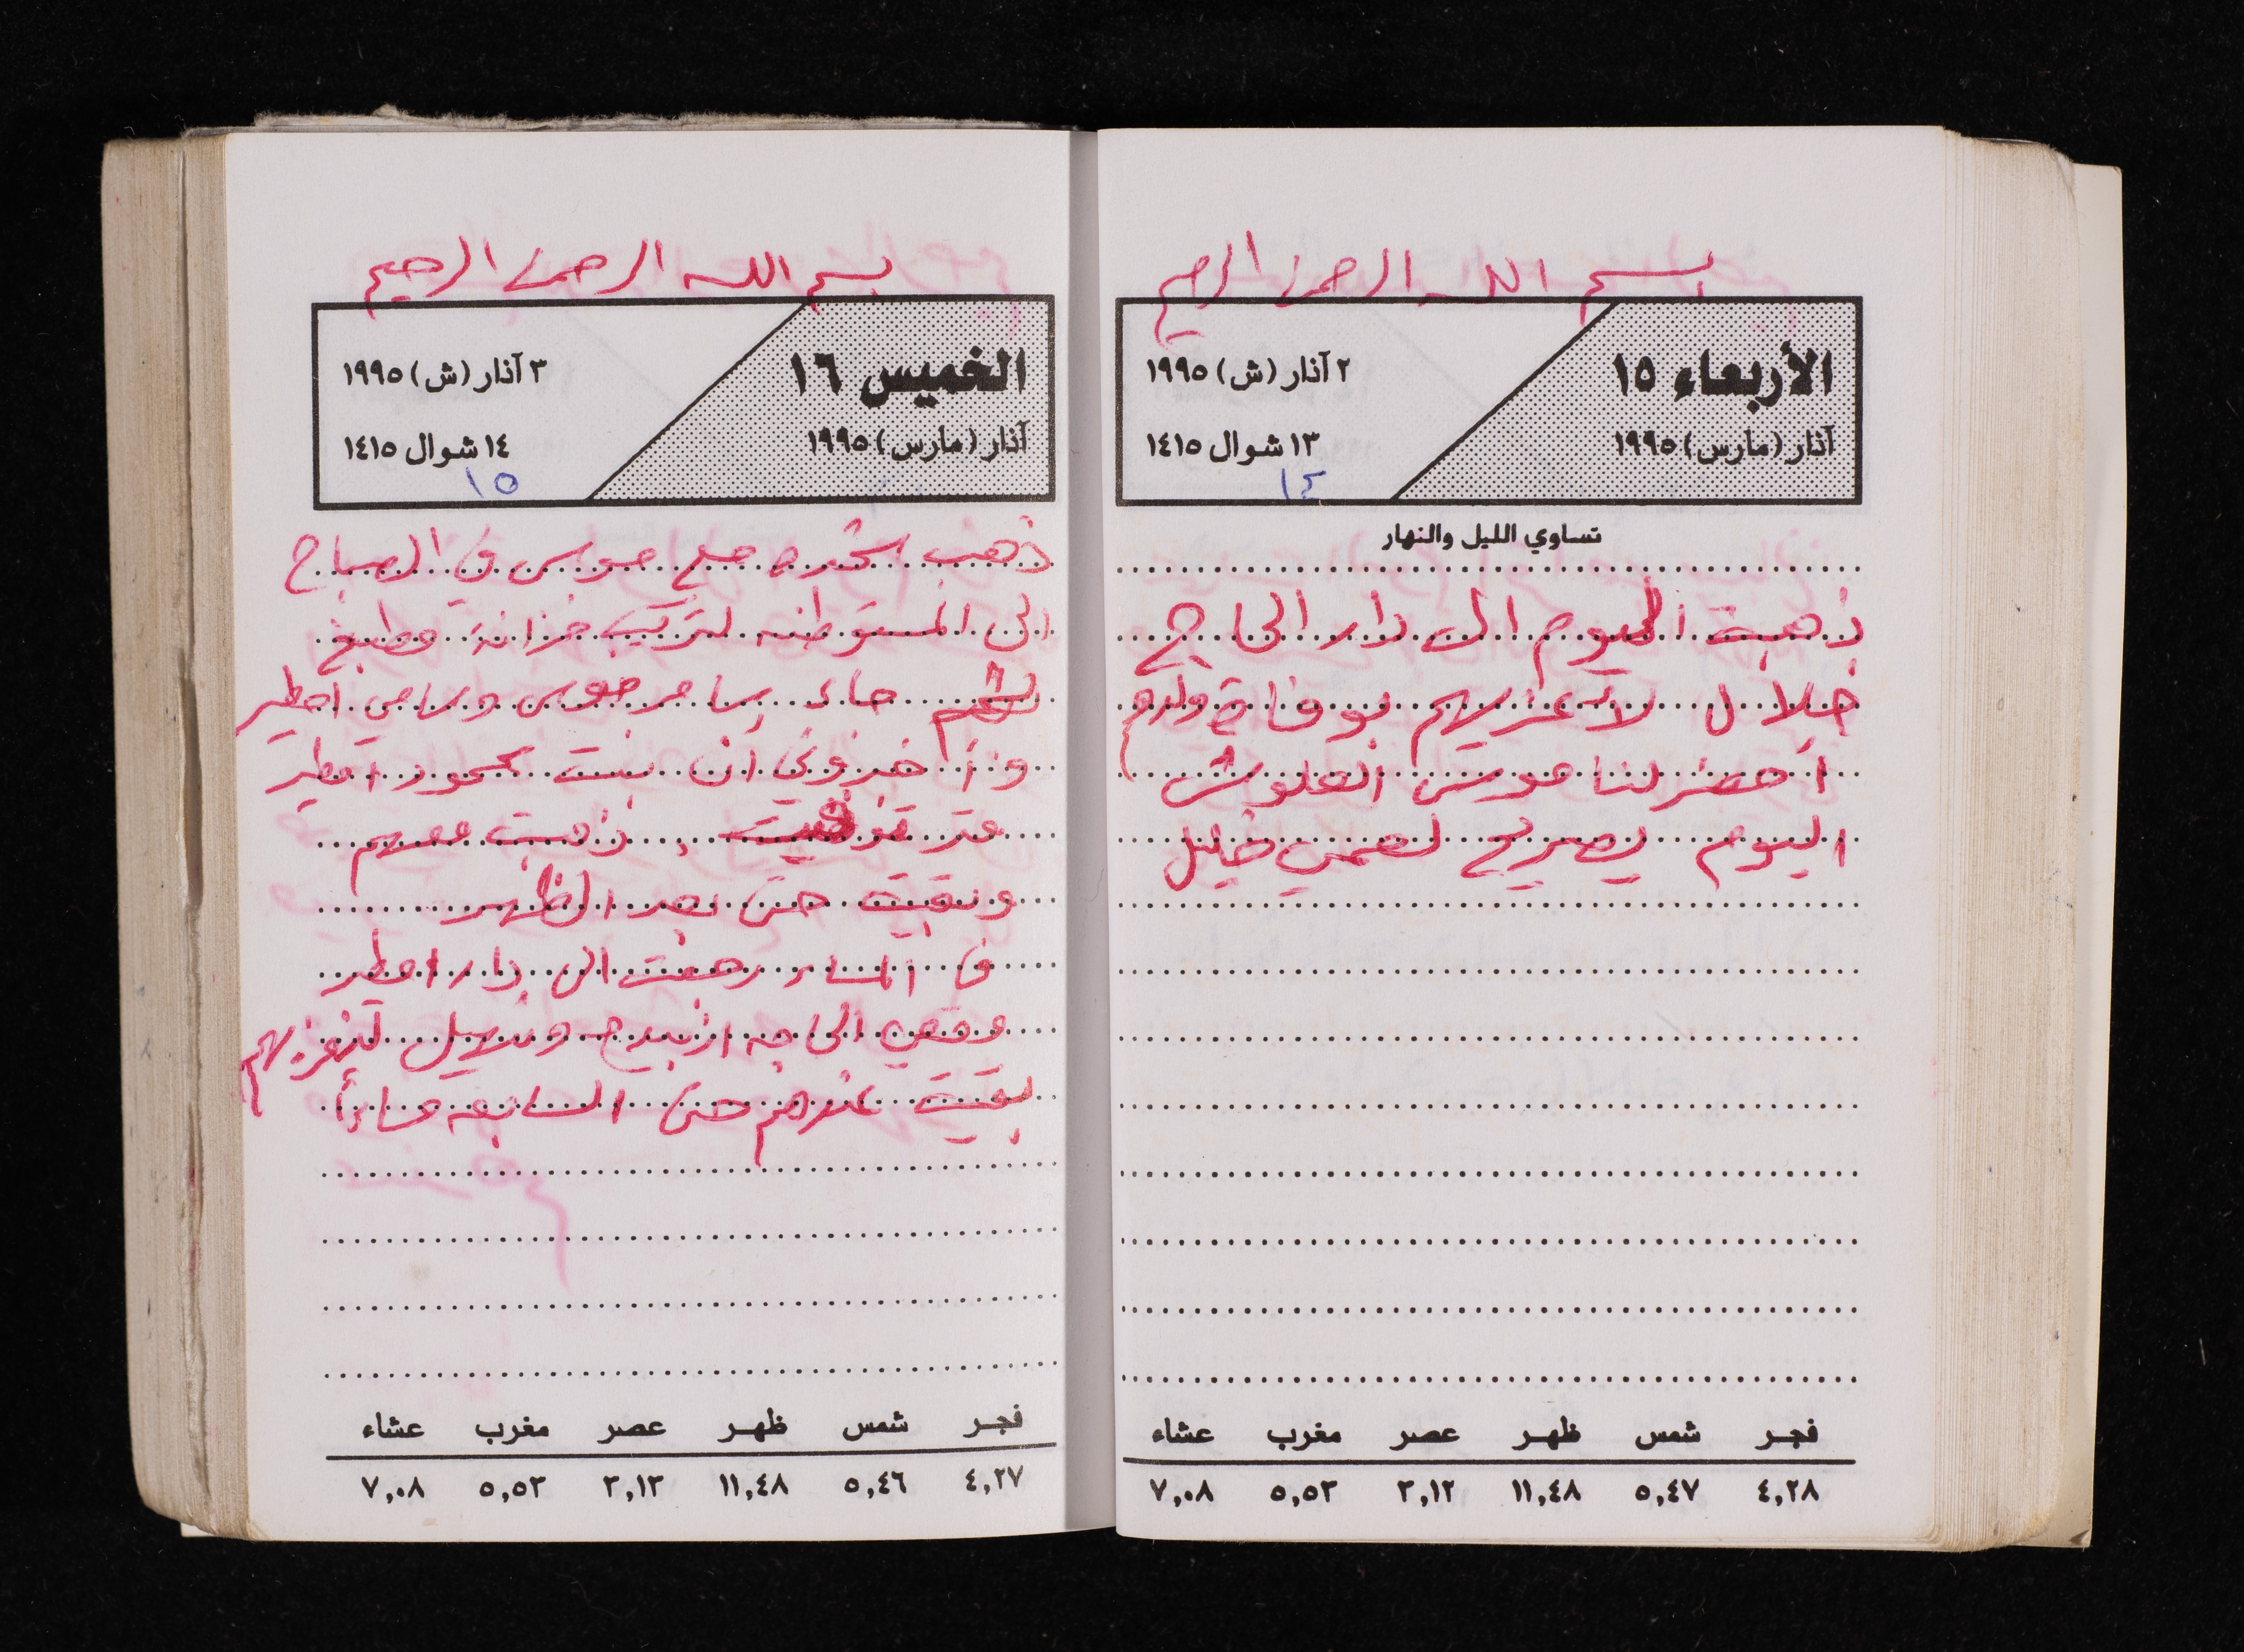 بسم الله الرحمن الرحيم
الأربعاء ١٥
آذار (مارس) ١٩٩٥
٢ آذار (ش) ١٩٩٥
١٣ شوال ١٤١٥
١٤
تساوي الليل والنهار
ذهبت اليوم الى دار الحاج
خلال لأعزيهم بوفاة ولدهم
أحضر لنا موسى الفلوش
اليوم يصريح لعمي خليل
فجر شمس ظهر عصر مغرب عشاء
٤,٢٨ ٥,٤٧ ١١,٤٨ ٣,١٢ ٥,٥٣ ٧,٠٨
بسم الله الرحمن الرحيم
الخميس ١٦
آذار (مارس) ١٩٩٥
٣ آذار (ش) ١٩٩٥
١٤ شوال ١٤١٥
١٥
ذهب مع موسى في الصباح
الى المستوطنه لتركيب خزانة مطبخ
جاء ياسر موسى وسامي امطير
وأخبروني أن بنت محمود امطير
قد توفيت، ذهبت معهم
وبقيت حتى بعد الظهر
في المساء رجعت الى دار امطير
ومعي الحاجه وسهيل لنعزيهم
بقيت عندهم حتى السابعه مساءاً
فجر شمس ظهر عصر مغرب عشاء
٤,٢٧ ٥,٤٦ ١١,٤٨ ٣,١٣ ٥,٥٣ ٧,٠٨